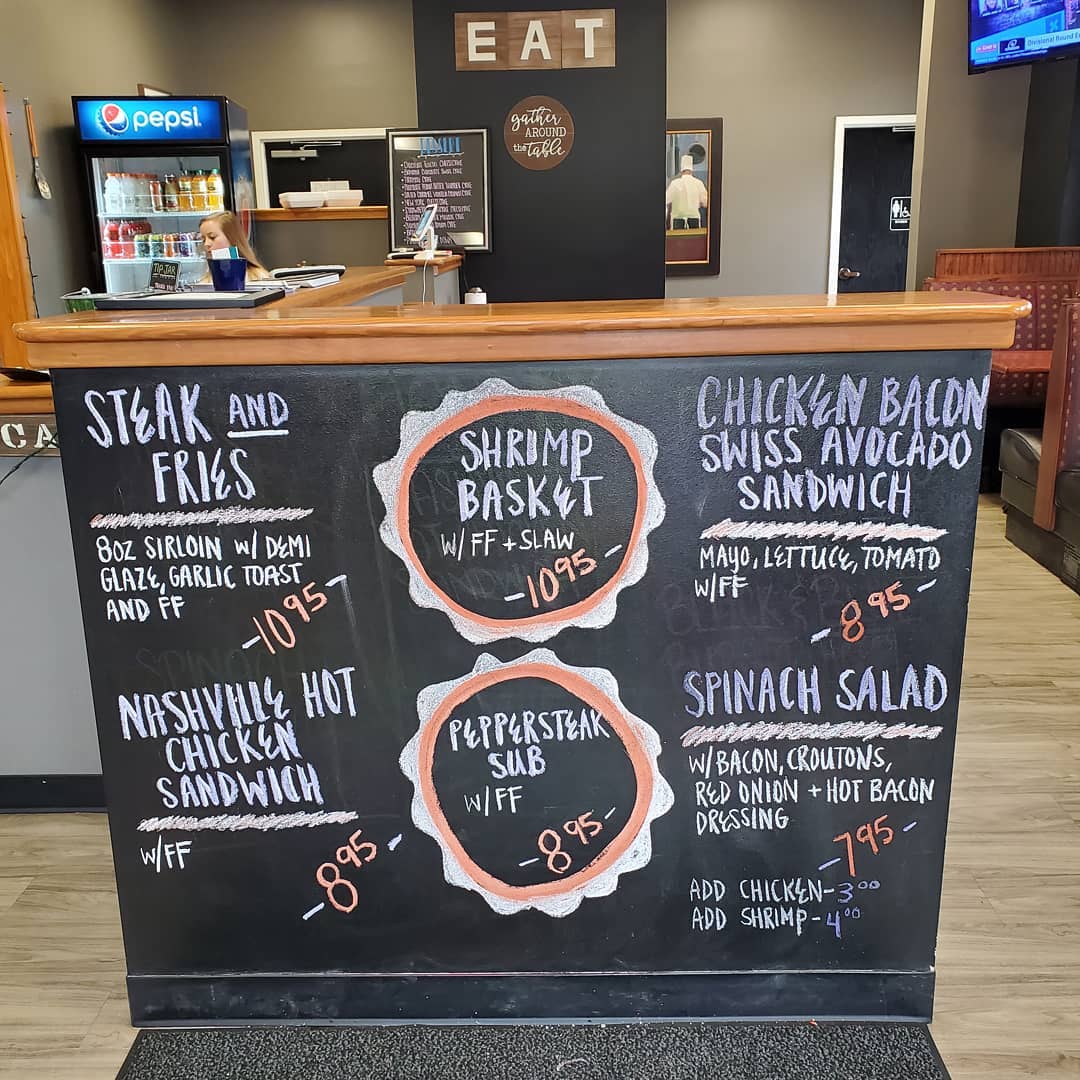 EAT
gather
AROUND
the table
pepsi
TIP JAR
CA
Divisional Round
STEAK AND
FRIES
8OZ SIRLOIN W/ DEMI
GLAZE, GARLIC TOAST
AND FF
-10.95-
NASHVILLE HOT
CHICKEN
SANDWICH
W/FF
-8.95-
SHRIMP
BASKET
W/ FF + SLAW
-10.95-
PEPPERSTEAK
SUB
W/FF
-8.95-
CHICKEN BACON
SWISS AVOCADO
SANDWICH
MAYO, LETTUCE, TOMATO
W/FF
-8.95-
SPINACH SALAD
W/BACON, CROUTONS,
RED ONION + HOT BACON
DRESSING
-7.95-
ADD CHICKEN-3.00
ADD SHRIMP-4.00